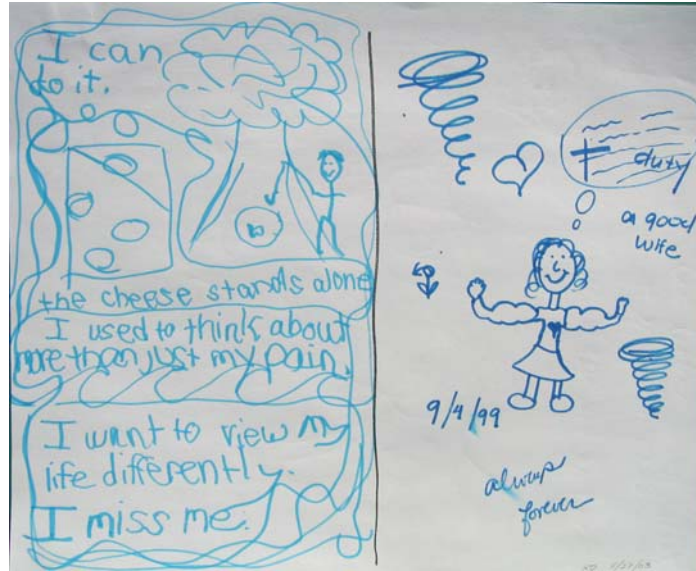 I can
do it.
the cheese stands alone
I used to think about
more than just my pain.
I want to view my
life differently.
I miss me.
duty
a good
wife
9/4/99
always
forever